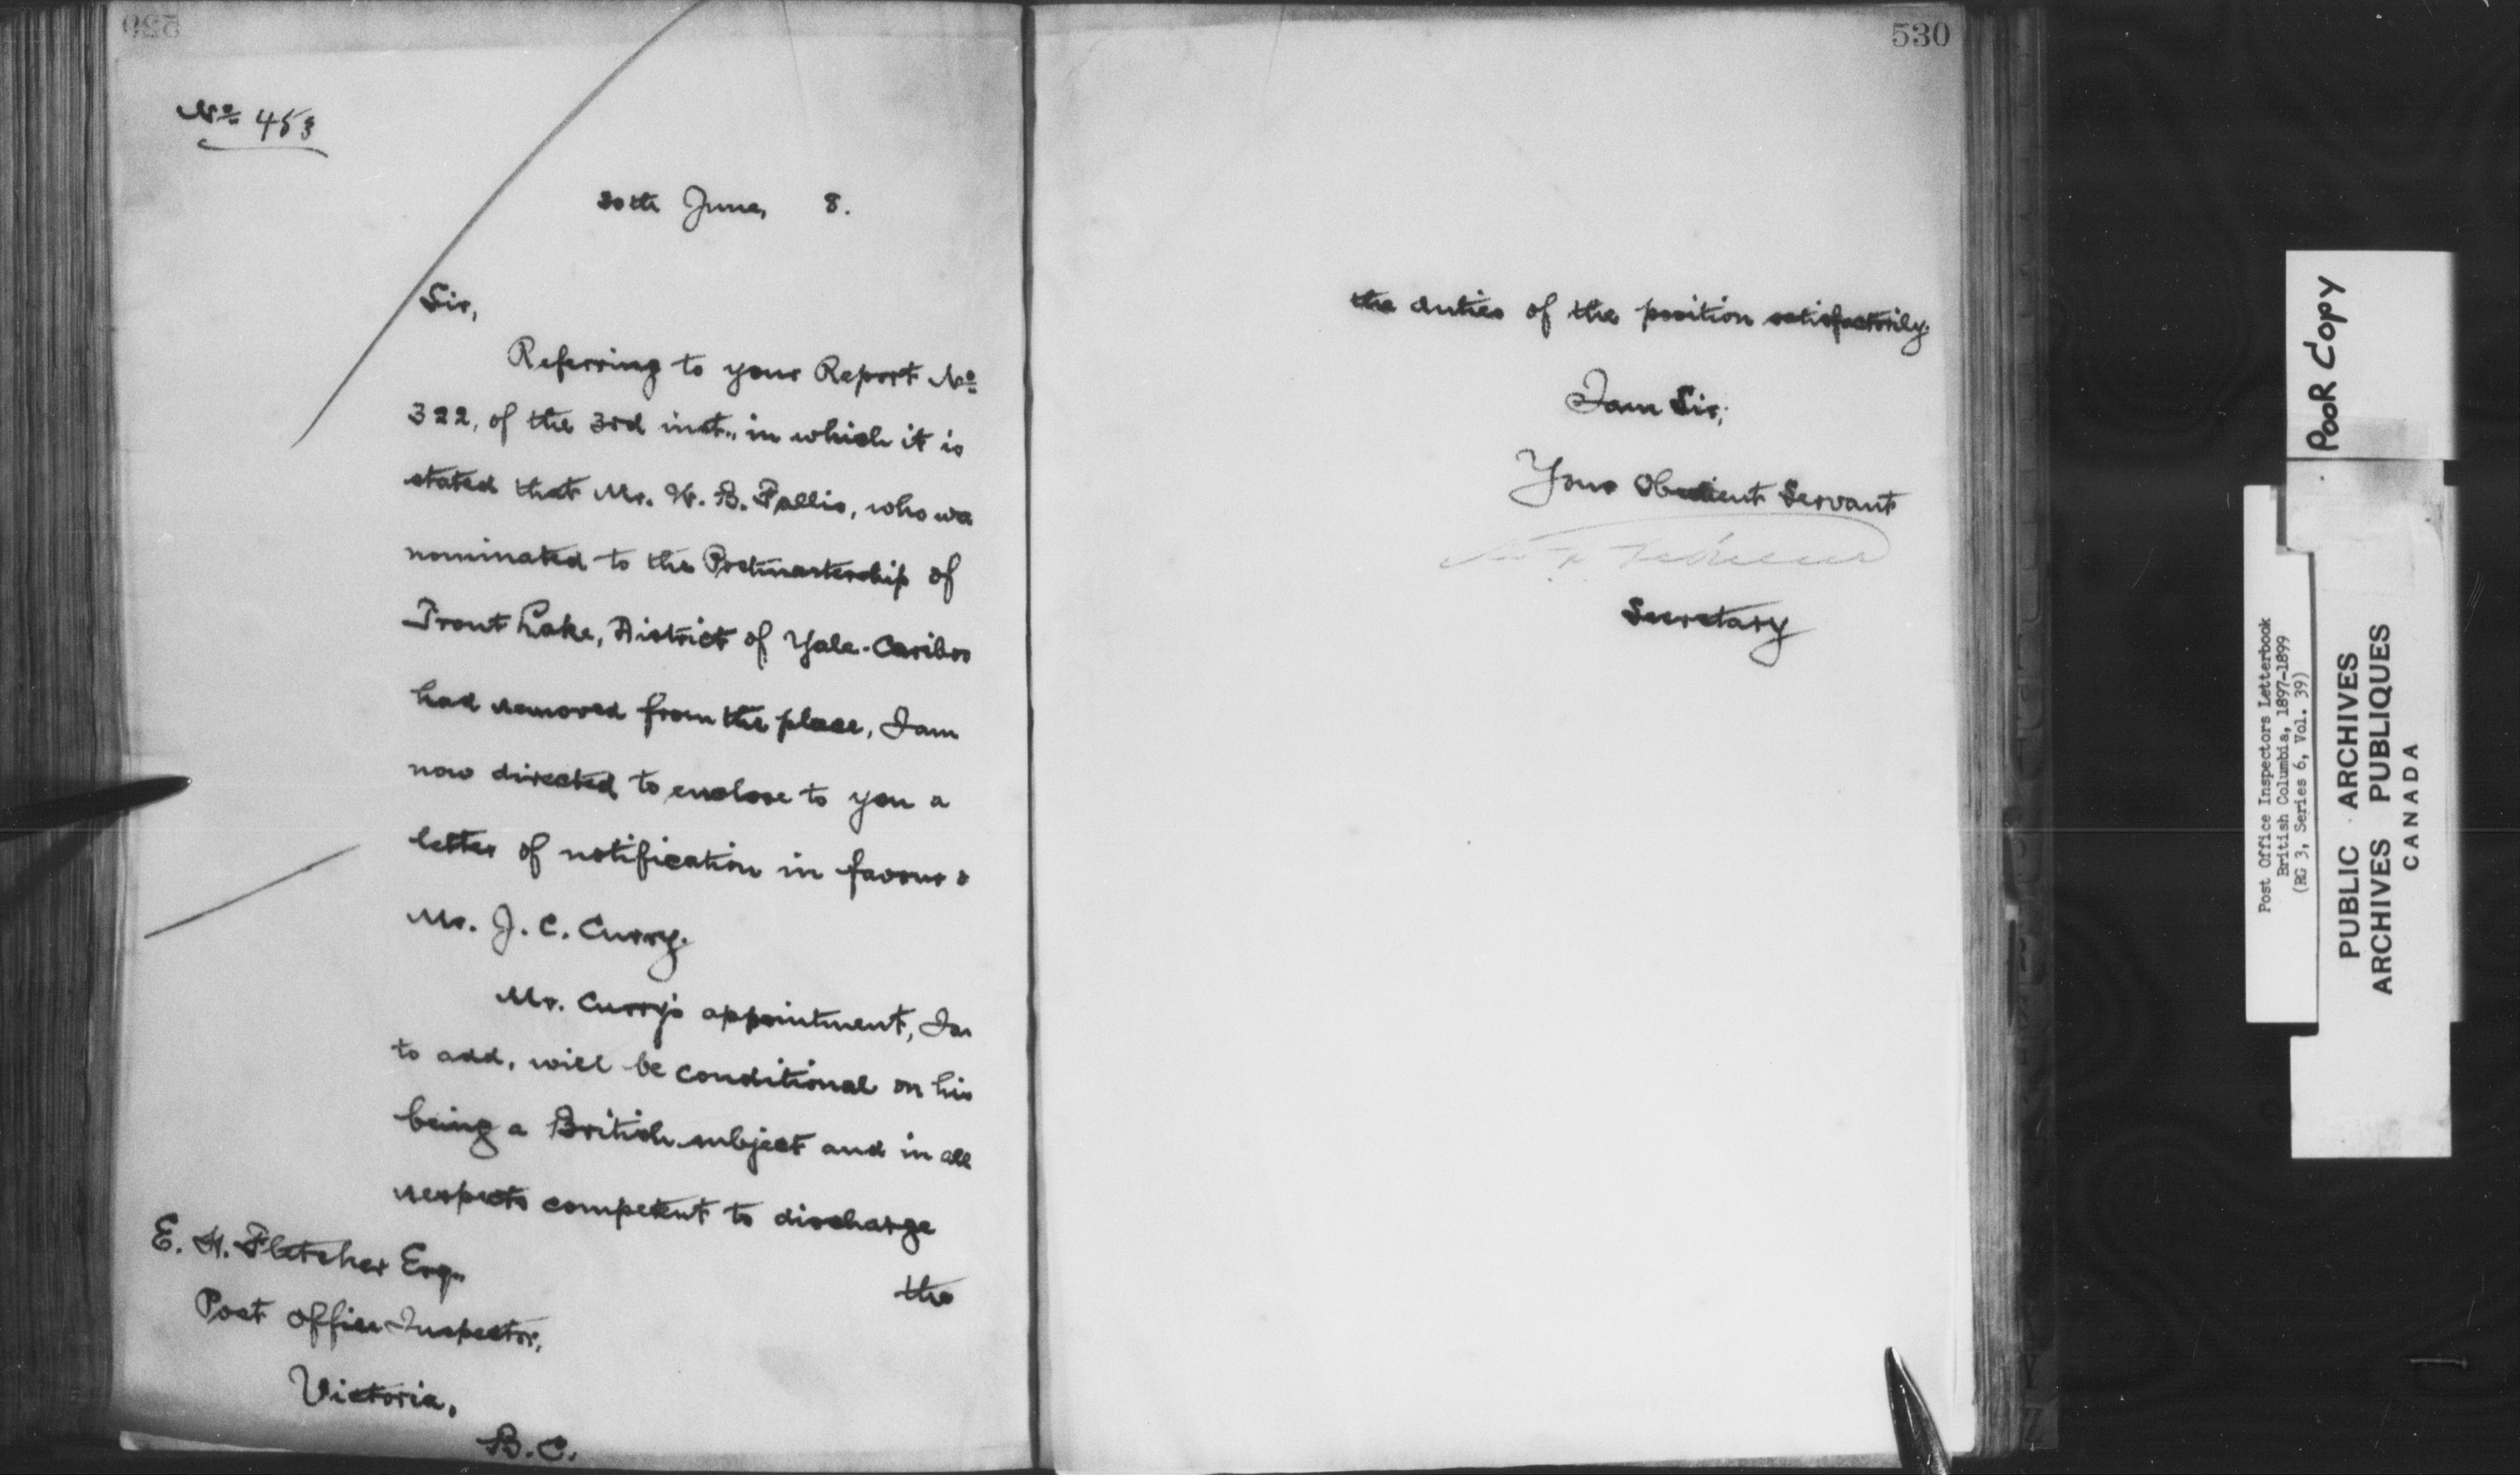 No 453
20th June, 8.
Sir,
Referring to your Report No
322, of the 3rd inst., in which it is
stated that Mr. B. Pallis, who wa
nominated to the Postmastership of
Trout Lake, District of Yale-Cariboo
had removed from the place, I am
now directed to enclose to you a
letter of notification in favour o
Mr. J. C. Curry.
Mr. Curry's appointment, I am
to add, will be conditional on his
being a British subject and in all
respects competent to discharge
the
E. H. Fletcher Esq.
Post Office Inspector,
Victoria,
B.C.
530
the duties of the position satisfactorily.
I am Sir,
Your Obedient Servant
Secretary
POOR COPY
Post Office Inspectors Letterbook
British Columbia, 1897-1899
(RG 3, Series 6, Vol. 39)
PUBLIC ARCHIVES
ARCHIVES PUBLIQUES
CANADA